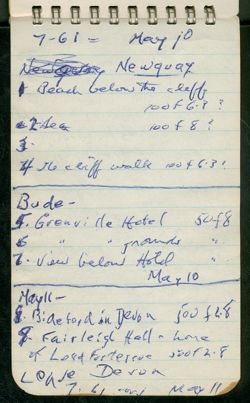 7-61 = May 10
Newquay
1 Beach below the cliff
100 f 6.3 ?
2 Sea 100 f 8 ?
3.
4 The cliff walk 100 f 6.3 ?
Bude-
5. Grenville Hotel 50 f 8
6 " " grounds "
7. View below Hotel "
May 10
May 11-
8. Bideford in Devon 500 f 2.8
9. Fairleigh Hall - home
of Lord Fortescue 500 f 2.8
Devon
7-61 May 11